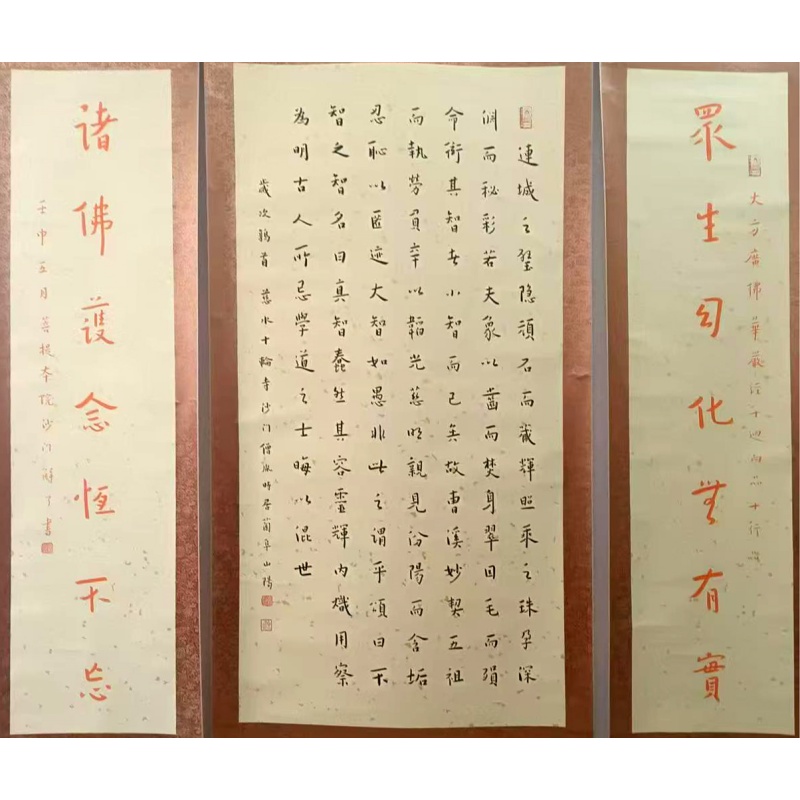 眾生幻化無有實
大方廣佛華嚴經十迴向品十行
連城之璧隐頑石而藏輝照乘之珠孕深
渊而秘彩若夫象以齒而焚身翠因毛而殞
命衒其智者小智而已矣故曹溪妙契五祖
而執勞負辛以韜光慈明親見汾陽而含垢
忍恥以匿迹大智如愚非此之謂乎頌曰不
智之智名曰真智蠢然其容靈輝内熾用察
為明古人所忌學道之士晦以混世
歲次鶉首 慈水十輪寺沙门僧 时居蘭阜山陽
諸佛護念恒不忘
壬申五月菩提本院沙门 了書